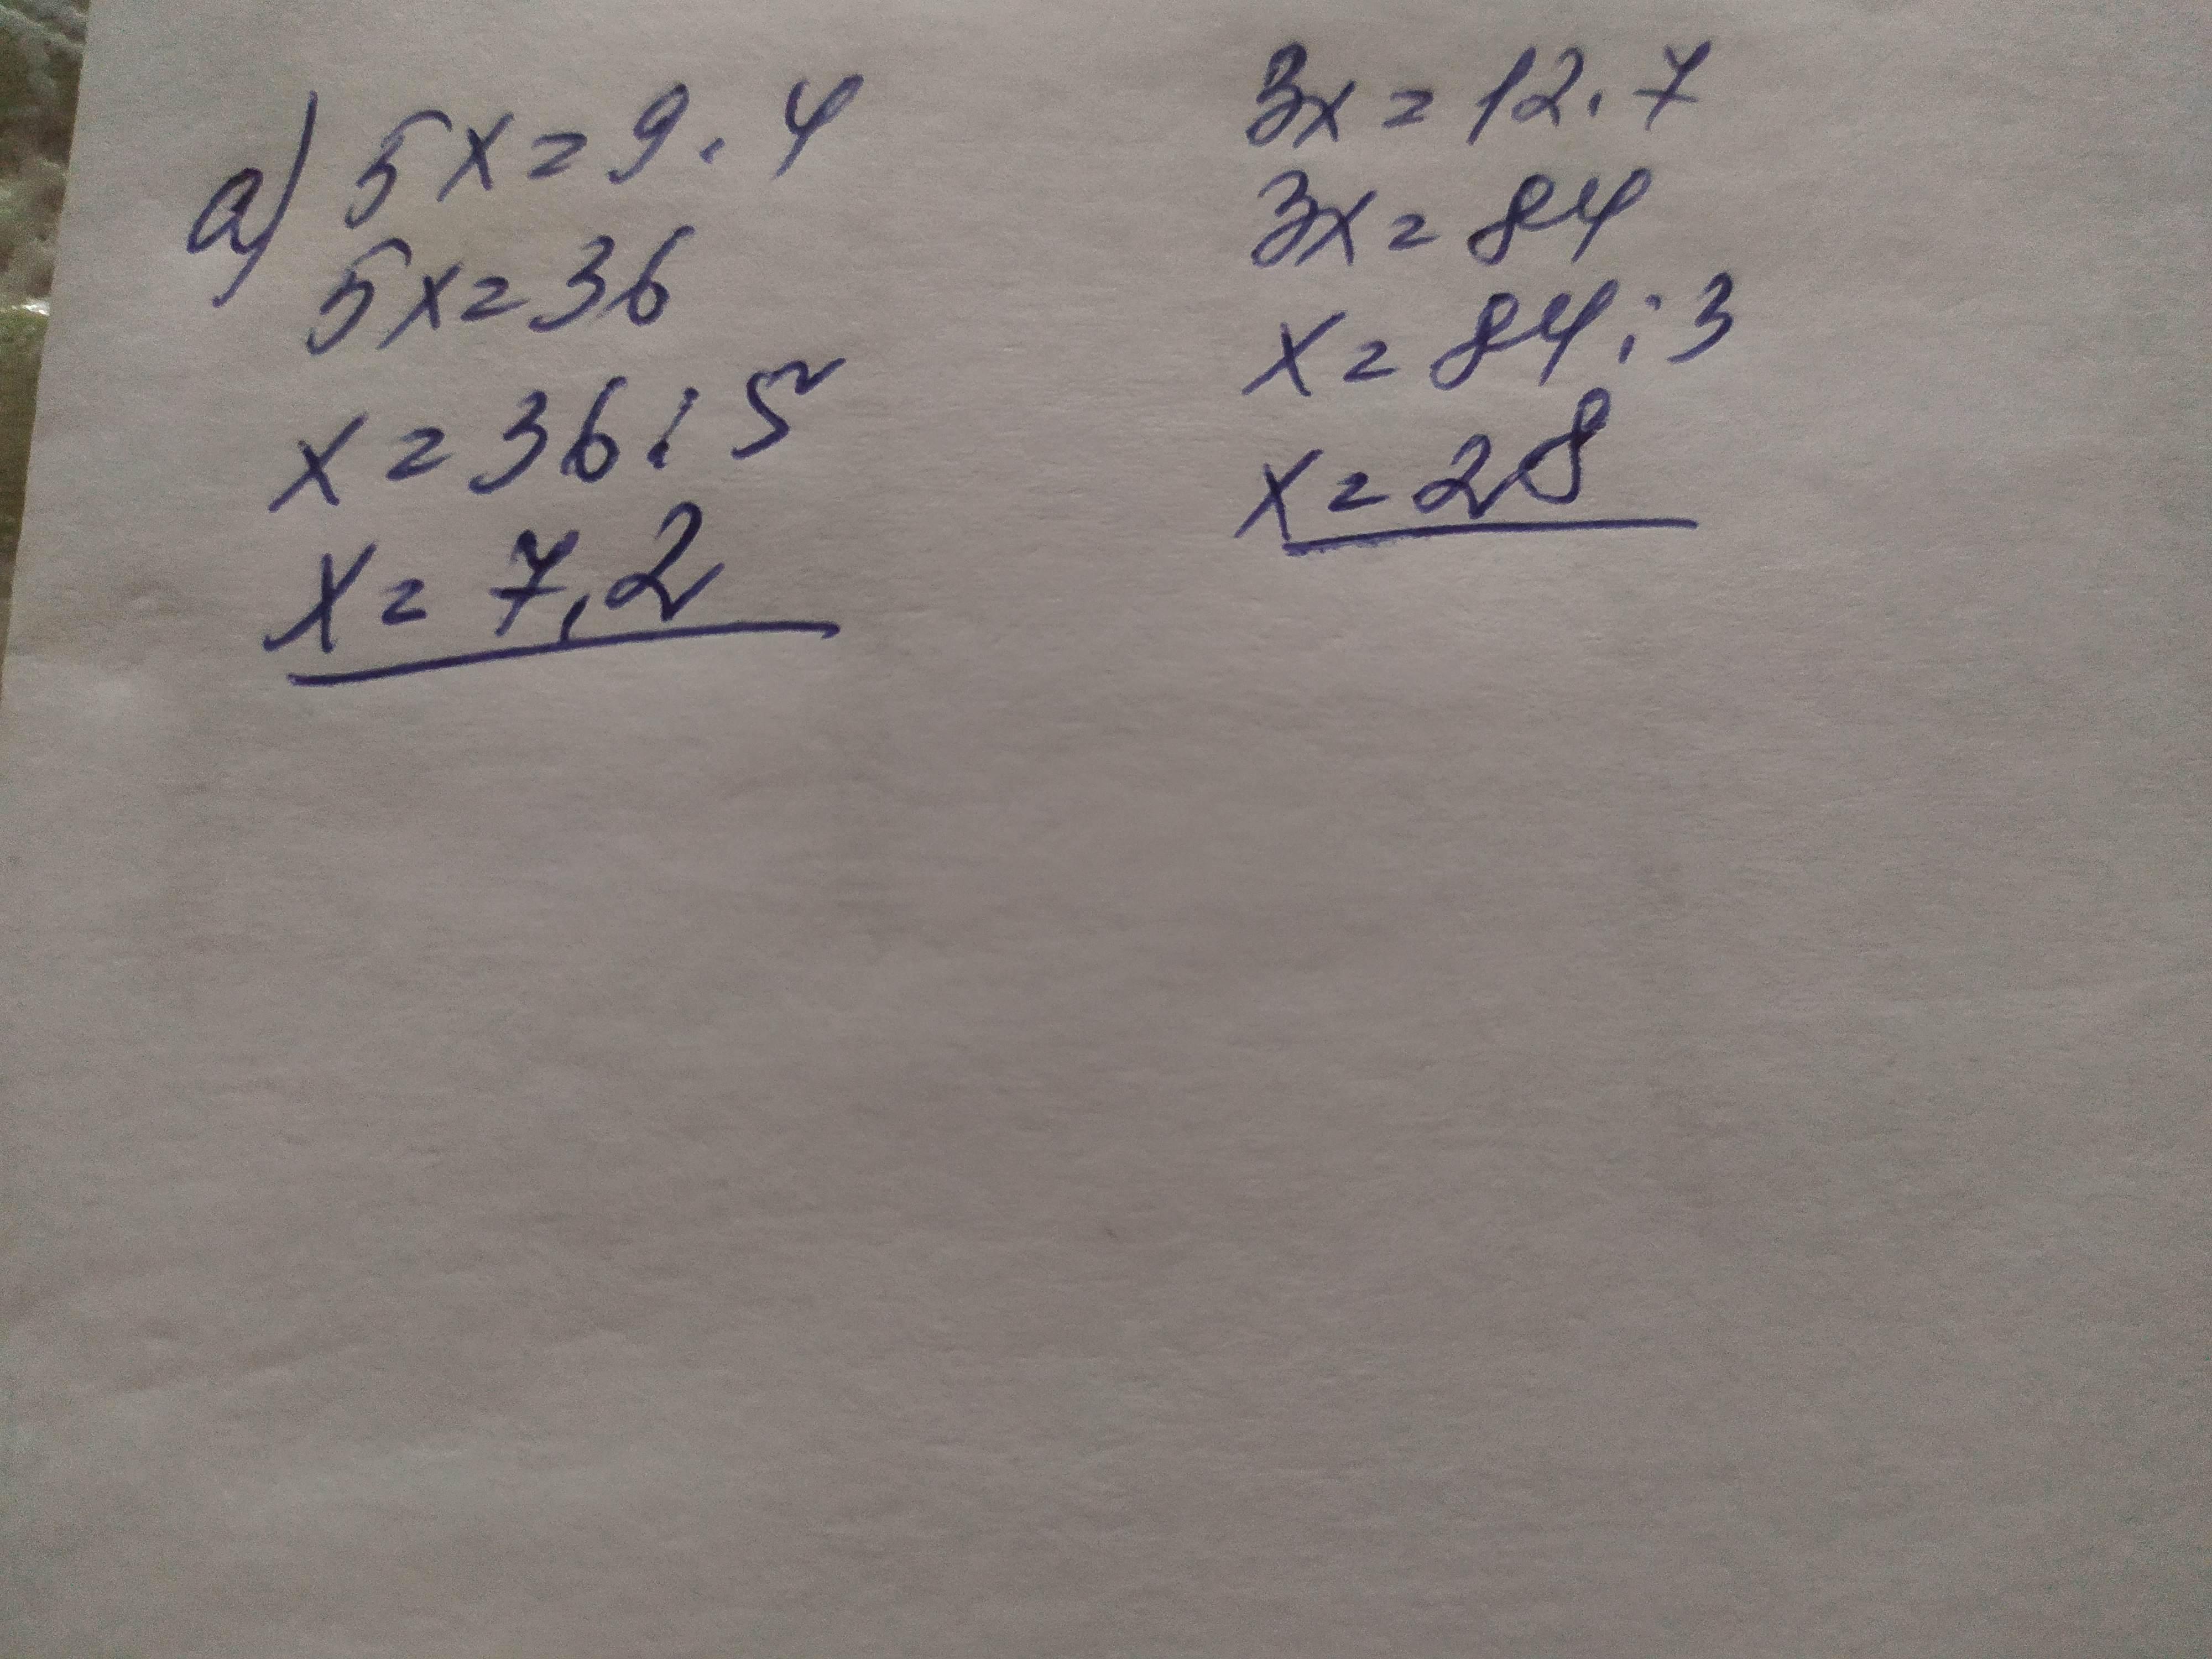 а) 5x = 9 . 4
5x = 36
x = 36 : 5
x = 7,2
3x = 12 . 7
3x = 84
x = 84 : 3
x = 28